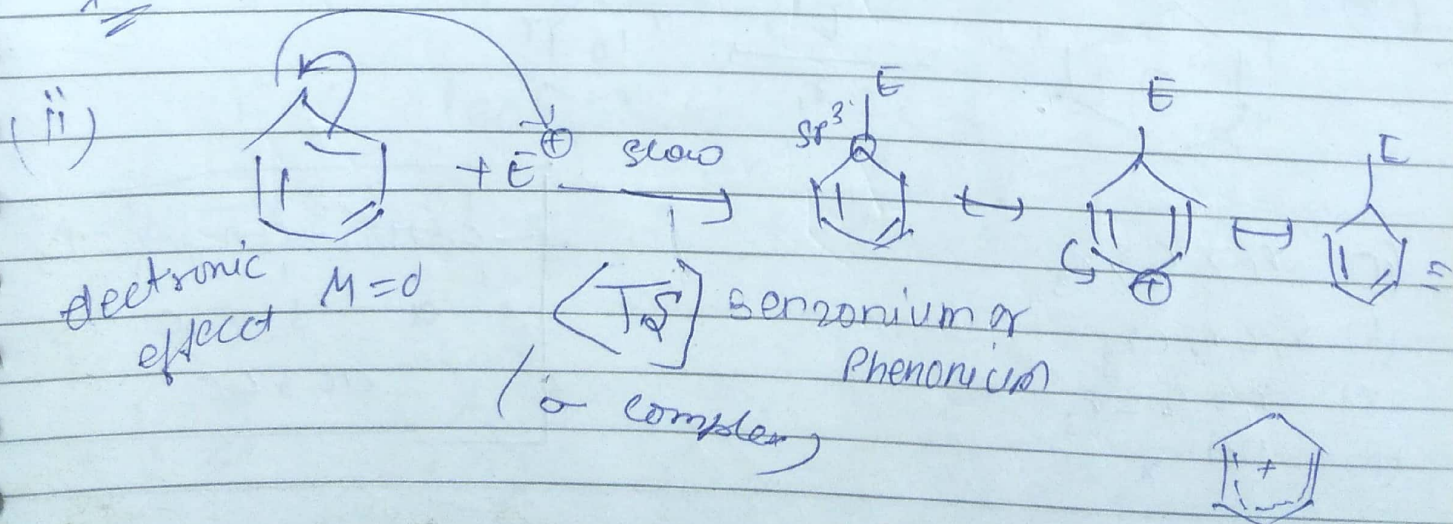 (ii)
+ E⊕ slow
sp³ E ↔ E ↔ E
⊕
electronic effect M=0
[TS] Benzonium or
Phenonium
(σ complex)
+